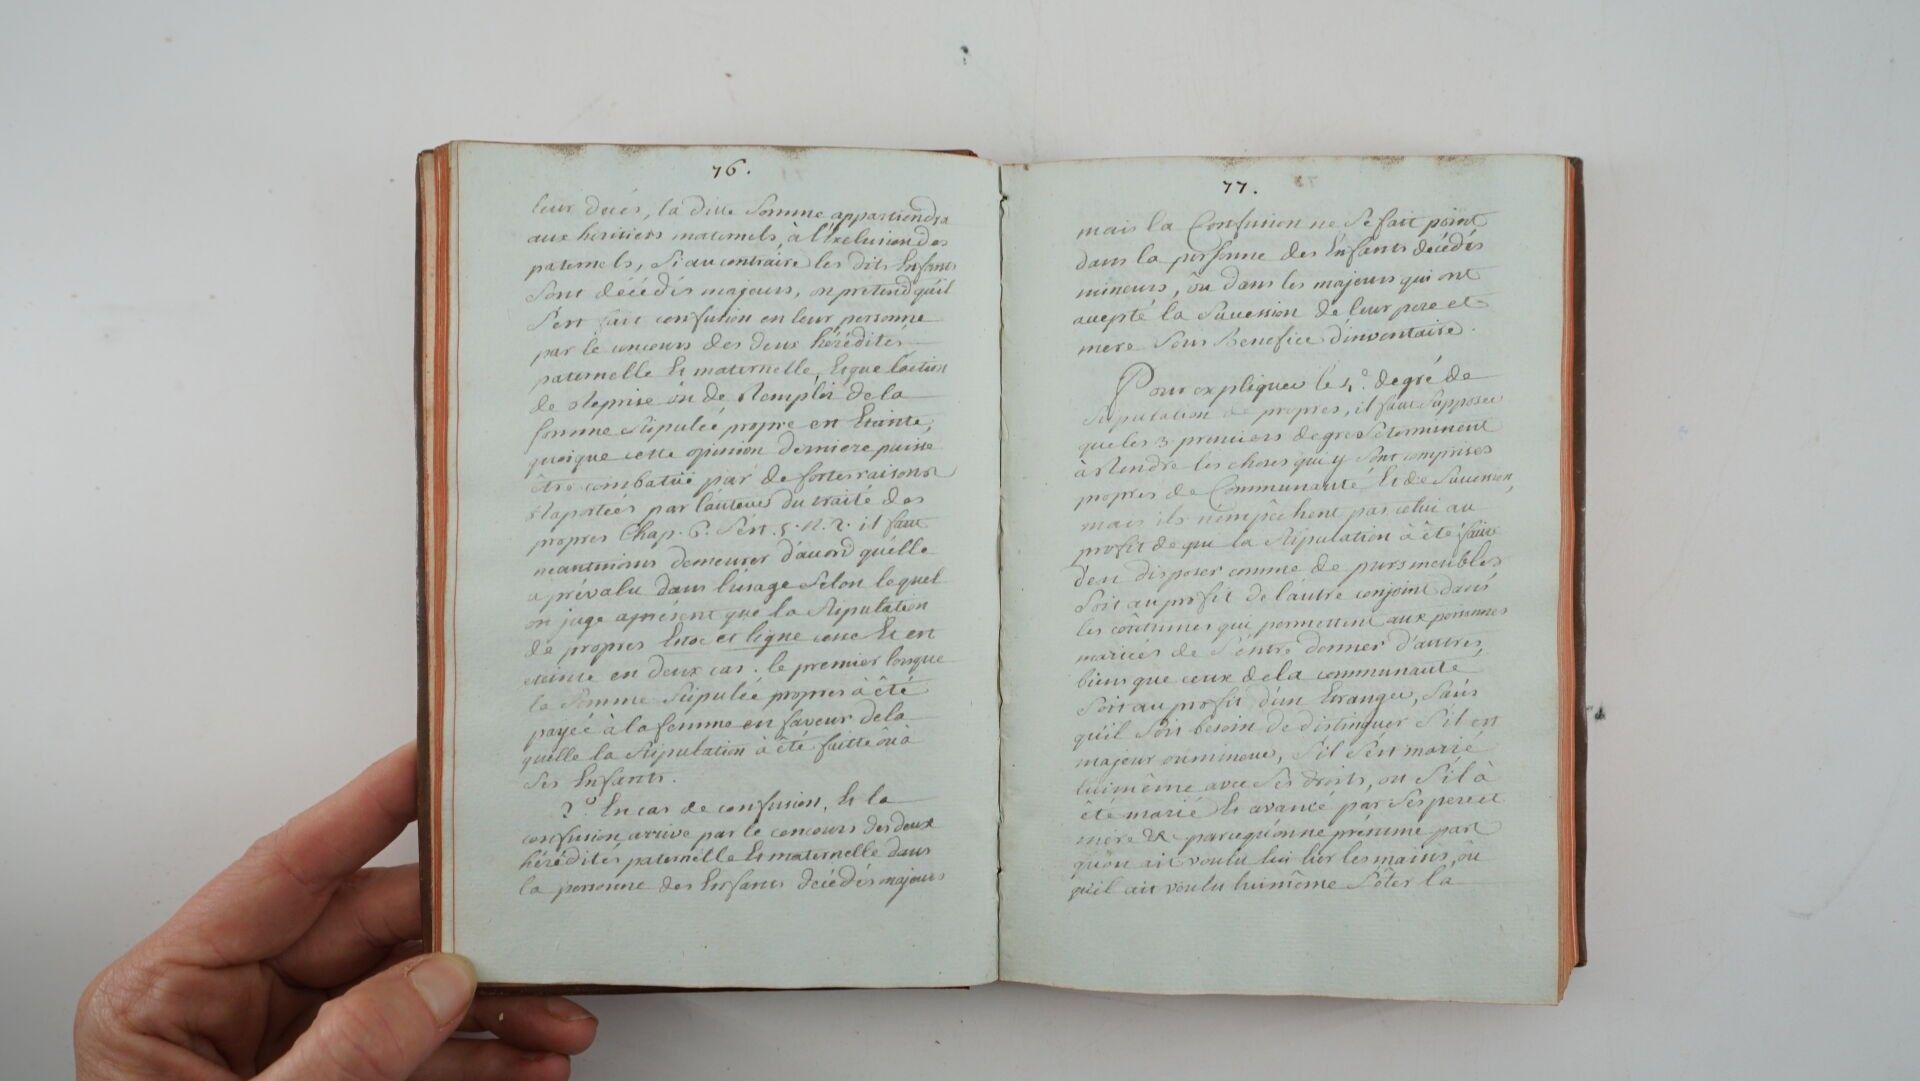 76.
leur decés, la ditte Somme appartiendra
aux heritiers maternels, à l'Exclusion des
paternels, Si au contraire les dits Enfants
Sont decédés majeurs, on pretend qu'il
S'est fait confusion en leur personne
par le concours des deux hérédités
paternelle Et maternelle, Et que l'action
de Reprise ou de Remploi de la
Somme Stipulée propre est Eteinte,
quoique cette opinion derniere puisse
être combatuë par de fortes raisons
Raportées par l'auteur du traité des
propres Chap. 6. Sect. 5. N. 2. il faut
neantmoins demeurer d'acord qu'elle
a prévalu dans l'usage Selon lequel
on juge apresent que la Stipulation
de propres Estoc et ligne cesse Et est
eteinte en deux cas. le premier lorsque
la Somme Stipulée propres à été
payée à la femme en faveur de la
quelle la Stipulation à été faitte ou a
Ses Enfants.
2.° En cas de confusion, Et la
confusion arrive par le concours des deux
hérédités paternelle Et maternelle dans
la personne des Enfants decédés majeurs
77.
mais la Confusion ne Se fait point
dans la personne des Enfants decédés
mineurs, ou dans les majeurs qui ont
accepté la Succession de leur pere et
mere Sous Benefice d'inventaire.
Pour expliquer le 4.° degré de
Stipulation de propres, il faut Supposer
que les 3 premiers degres Se terminent
à Rendre les choses qui y Sont comprises
propres de Communauté Et de Succession,
mais ils n'empechent pas celui au
profit de qui la Stipulation à été faitte
d'en disposer comme de purs meubles
Soit au profit de l'autre conjoint dans
les coûtumes qui permettent aux personnes
mariées de S'entre donner d'autres
biens que ceux de la communauté
Soit au profit d'un Etranger, Sans
qu'il Soit besoin de distinguer S'il est
majeur ou mineur, S'il S'est marié
lui même avec Ses droits, ou S'il à
été marié Et avancé par Ses pere et
mere &c parcequ'on ne présume pas
qu'on ait voulu lui lier les mains, ou
qu'il ait voulu lui même S'ôter la